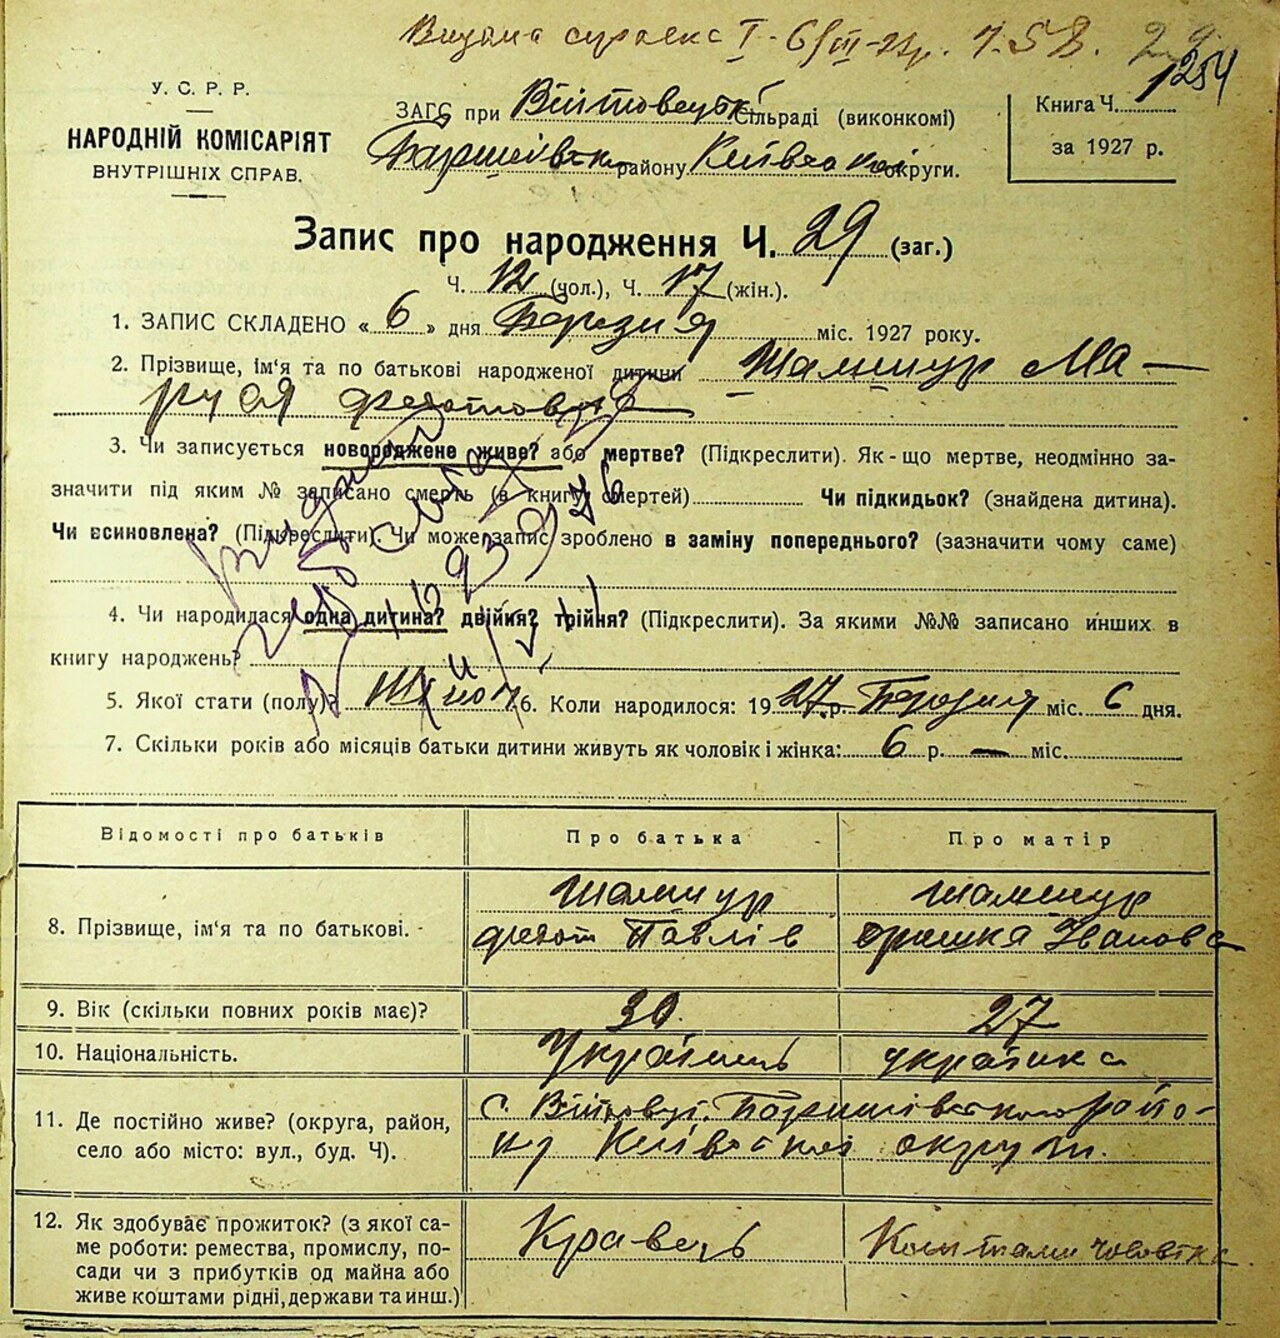 Видана справка I - 6/III-27р. 1254
У. С. Р. Р.
НАРОДНІЙ КОМІСАРІЯТ
ВНУТРІШНІХ СПРАВ.
ЗАГС при Війтовецькі сільраді (виконкомі)
Баришівськ району Київської округи.
Книга Ч.
за 1927 р.
Запис про народження Ч. 29 (заг.)
Ч. 12 (чол.), Ч. 17 (жін.).
1. ЗАПИС СКЛАДЕНО « 6 » дня Березня міс. 1927 року.
2. Прізвище, ім'я та по батькові народженої дитини Шамшур Ма-
руся Федотовна
3. Чи записується новороджене живе? або мертве? (Підкреслити). Як-що мертве, неодмінно за-
значити під яким № записано смерть (в книгу смертей) Чи підкидьок? (знайдена дитина).
Чи всиновлена? (Підкреслити). Чи може запис зроблено в заміну попереднього? (зазначити чому саме)
4. Чи народилася одна дитина? двійня? трійня? (Підкреслити). За якими №№ записано инших в
книгу народжень?
5. Якої стати (полу)? Жіноч 6. Коли народилося: 1927 р. Березня міс. 6 дня.
7. Скільки років або місяців батьки дитини живуть як чоловік і жінка: 6 р. — міс.
Відомості про батьків Про батька Про матір
8. Прізвище, ім'я та по батькові. Шамшур Шамшур
Федот Павлів Оришка Іванова
9. Вік (скільки повних років має)? 30. 27
10. Національність. Українець українка
11. Де постійно живе? (округа, район,
село або місто: вул., буд. Ч).
с. Війтовці. Баришівського райо-
ну Київської округи.
12. Як здобуває прожиток? (з якої са-
ме роботи: ремества, промислу, по-
сади чи з прибутків од майна або
живе коштами рідні, держави та инш.)
Кравець Коштами чоловіка